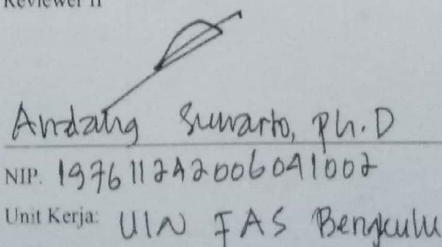 Reviewer II
Andang Sunarto, Ph.D
NIP. 197611242006041002
Unit Kerja: UIN FAS Bengkulu